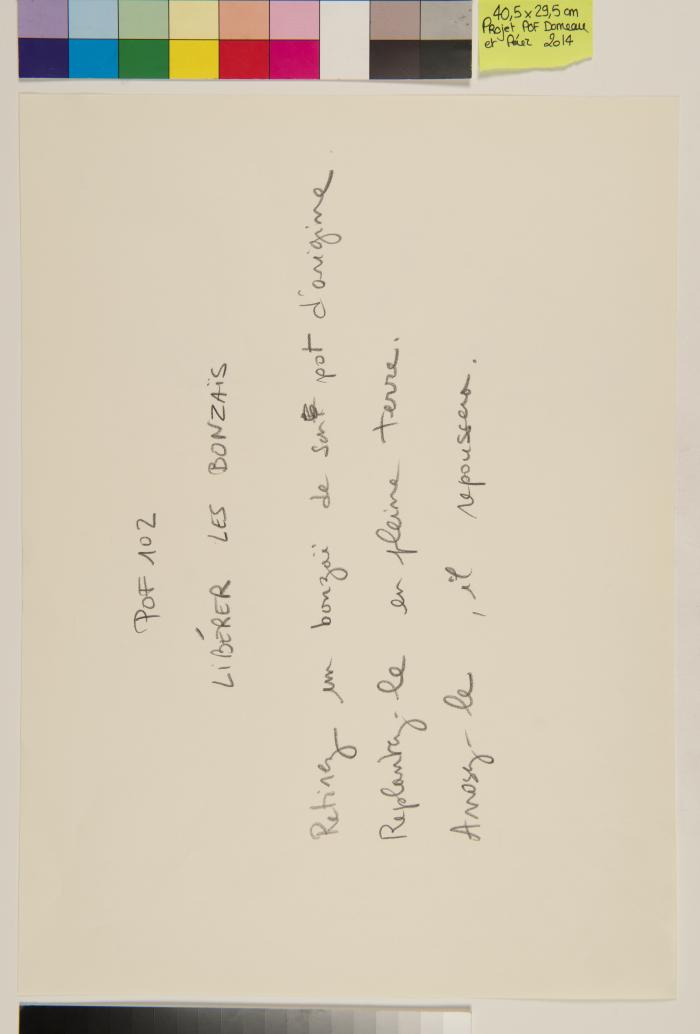 40,5 x 29,5 cm
Projet POF Domeau
et Pérez 2014
POF 102
LIBÉRER LES BONZAÏS
Retirez un bonzaï de son pot d'origine.
Replantez-le en pleine terre.
Arrosez-le, il repoussera.